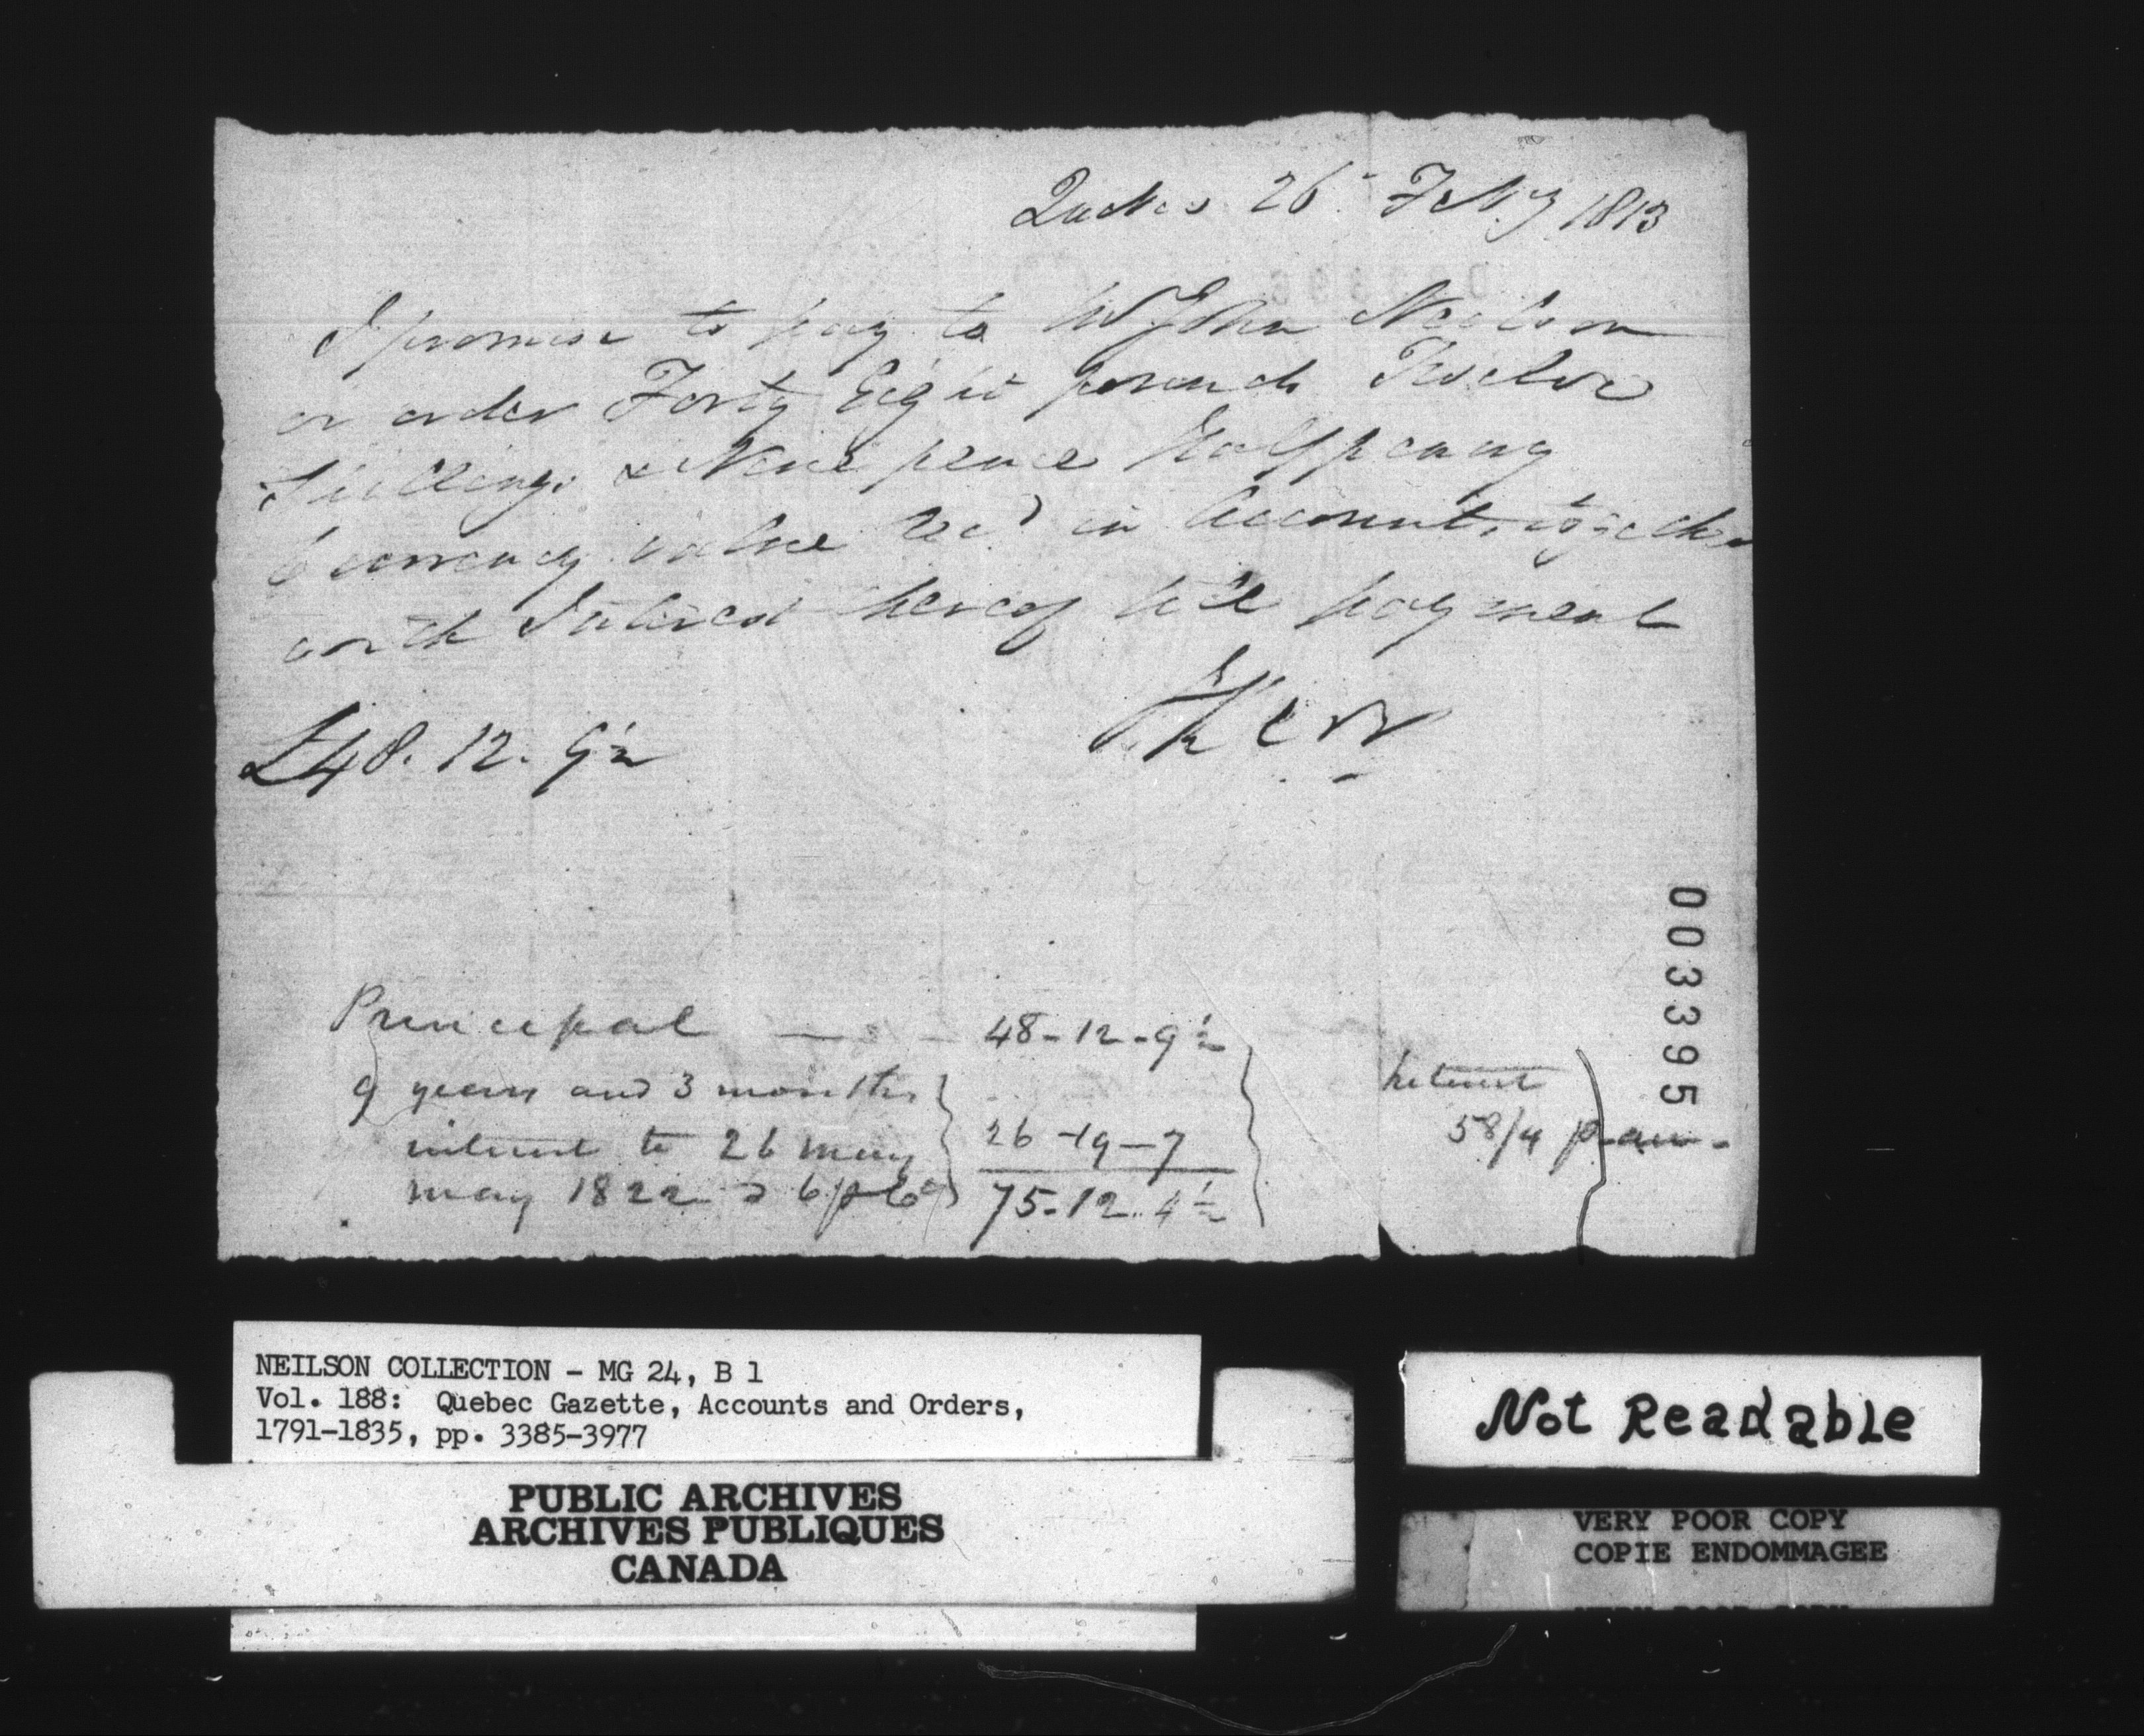 Quebec 26 Feby 1813
I promise to pay to Mr John Neilson
or order Forty Eight pounds Twelve
Shillings & Nine pence halfpenny
Currency value Recd in Account, together
with Interest hereof till payment
£48.12.9½
Kerr
Principal — 48-12-9½
9 years and 3 months
interest to 26 may 26-19-7
may 1822 a 6 p Ct 75-12-4½
Interest
58/4 p ann.
003395
NEILSON COLLECTION - MG 24, B 1
Vol. 188: Quebec Gazette, Accounts and Orders,
1791-1835, pp. 3385-3977
PUBLIC ARCHIVES
ARCHIVES PUBLIQUES
CANADA
Not Readable
VERY POOR COPY
COPIE ENDOMMAGEE